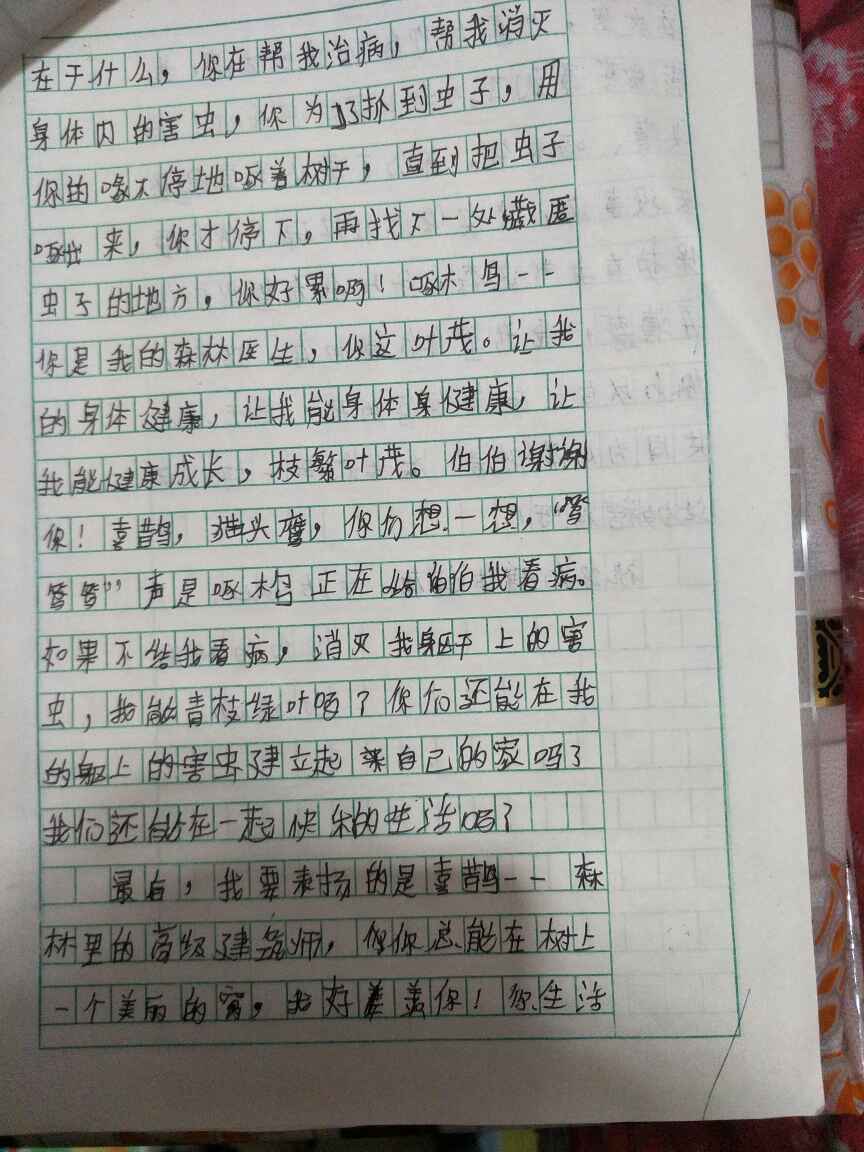 在干什么，你在帮我治病，帮我消灭
身体内的害虫，你为了扒到虫子，用
你的喙不停地啄着树干，直到把虫子
啄出来，你才停下，再找下一处藏匿
虫子的地方，你好累啊！啄木鸟--
你是我的森林医生，你这叶茂。让我
的身体健康，让我能身体身健康，让
我能健康成长，枝繁叶茂。伯伯谢谢
你！喜鹊，猫头鹰，你们想一想，“笃
笃笃”声是啄木鸟正在给伯伯我看病。
如果不给我看病，消灭我躯干上的害
虫，我能青枝绿叶吗？你们还能在我
的躯上的害虫建立起来自己的家吗？
我们还能在一起快乐的生活吗？
最后，我要表扬的是喜鹊--森
林里的高级建筑师，你总能在树上
一个美丽的窝，我好羡慕你！你生活